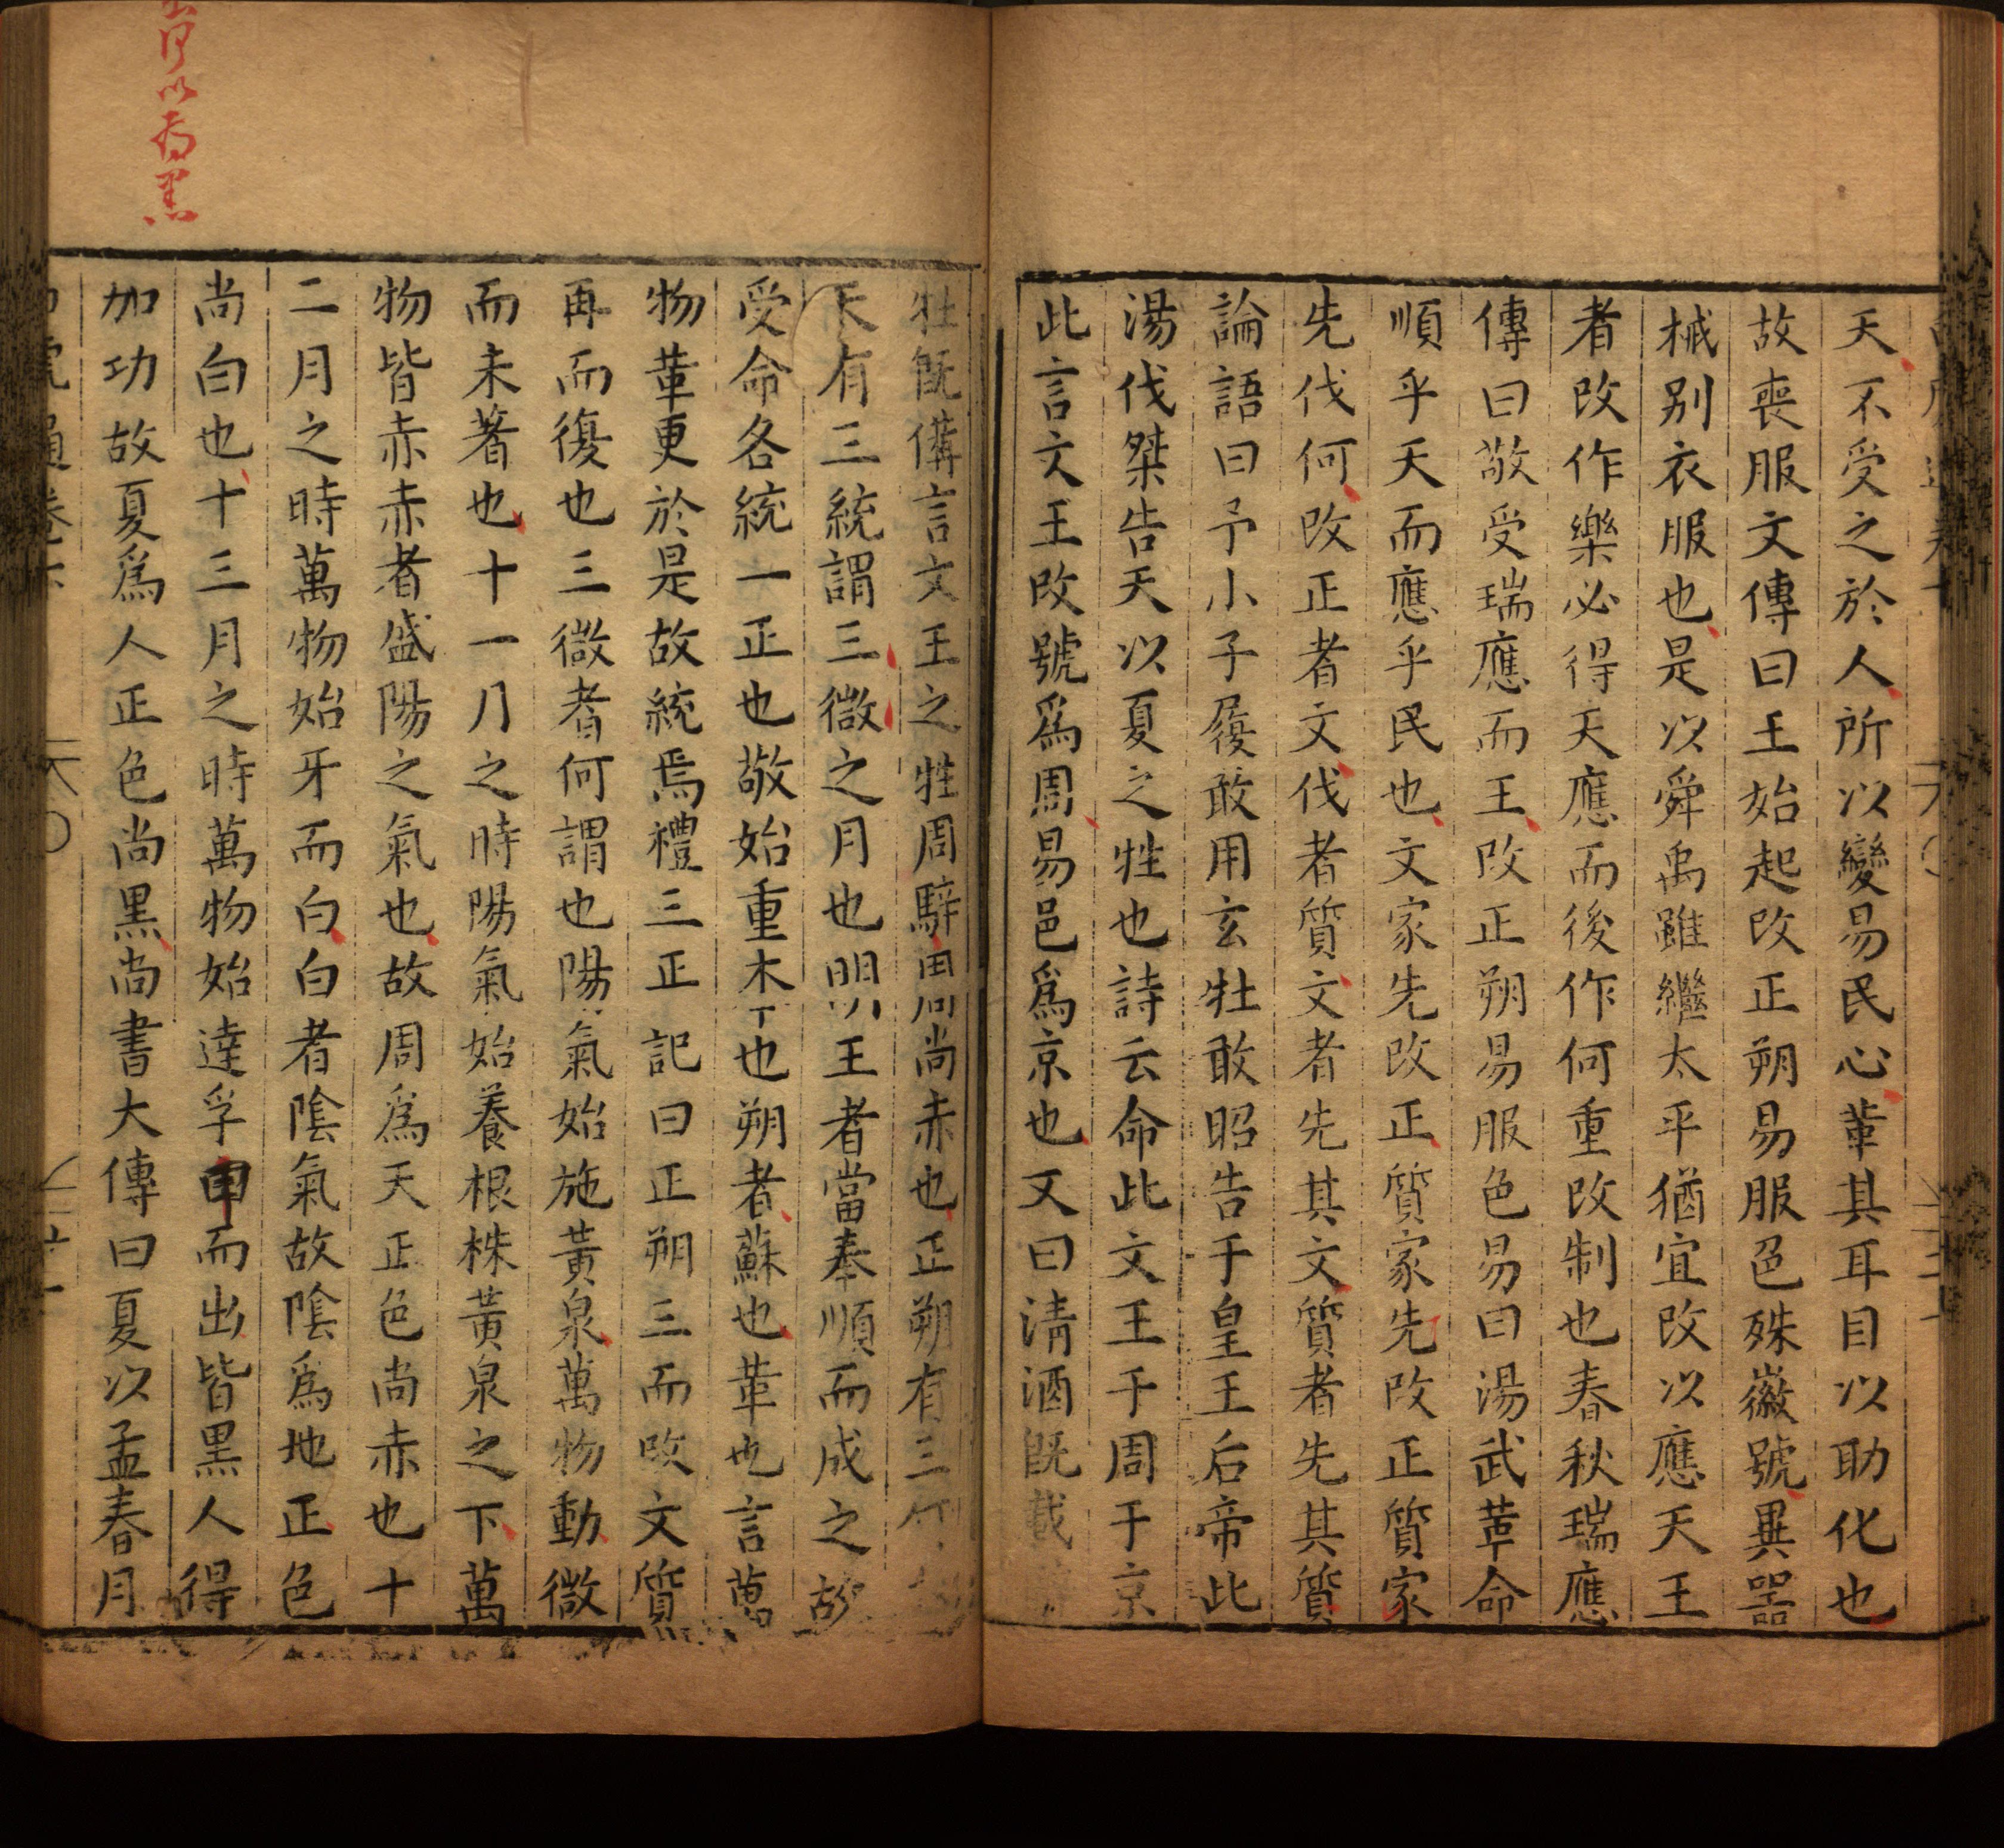 天不受之於人所以變易民心革其耳目以助化也
故喪服文傳曰王始起改正朔易服色殊徽號異噐
械别衣服也是以舜禹雖繼太平猶宜改以應天王
者改作樂必得天應而後作何重改制也春秋瑞應
傳曰敬受瑞應而王改正朔易服色易曰湯武革命
順乎天而應乎民也文家先改正質家先改正質家
先伐何改正者文伐者質文者先其文質者先其質
論語曰予小子履敢用玄牡敢昭告于皇王后帝此
湯伐桀告天以夏之牲也詩云命此文王于周于京
此言文王改號爲周易邑爲京也又曰清酒旣載
牡旣備言文王之牲周騂周尚赤也正朔有三
天有三統謂三微之月也明王者當奉順而成之故
受命各統一正也敬始重本也朔者蘇也革也言萬
物革更於是故統焉禮三正記曰正朔三而改文質
再而復也三微者何謂也陽氣始施黃泉萬物動微
而未著也十一月之時陽氣始養根株黃泉之下萬
物皆赤赤者盛陽之氣也故周爲天正色尚赤也十
二月之時萬物始牙而白白者陰氣故陰爲地正色
尚白也十三月之時萬物始達孚甲而出皆黑人得
加功故夏爲人正色尚黑尚書大傳曰夏以孟春月
以爲黑